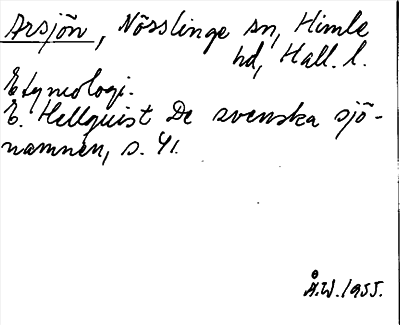 Arsjön, Nösslinge sn, Himle
hd, Hall. l.
Etymologi.
E. Hellquist De svenska sjö-
namnen, s. 41.
Å.W. 1955.